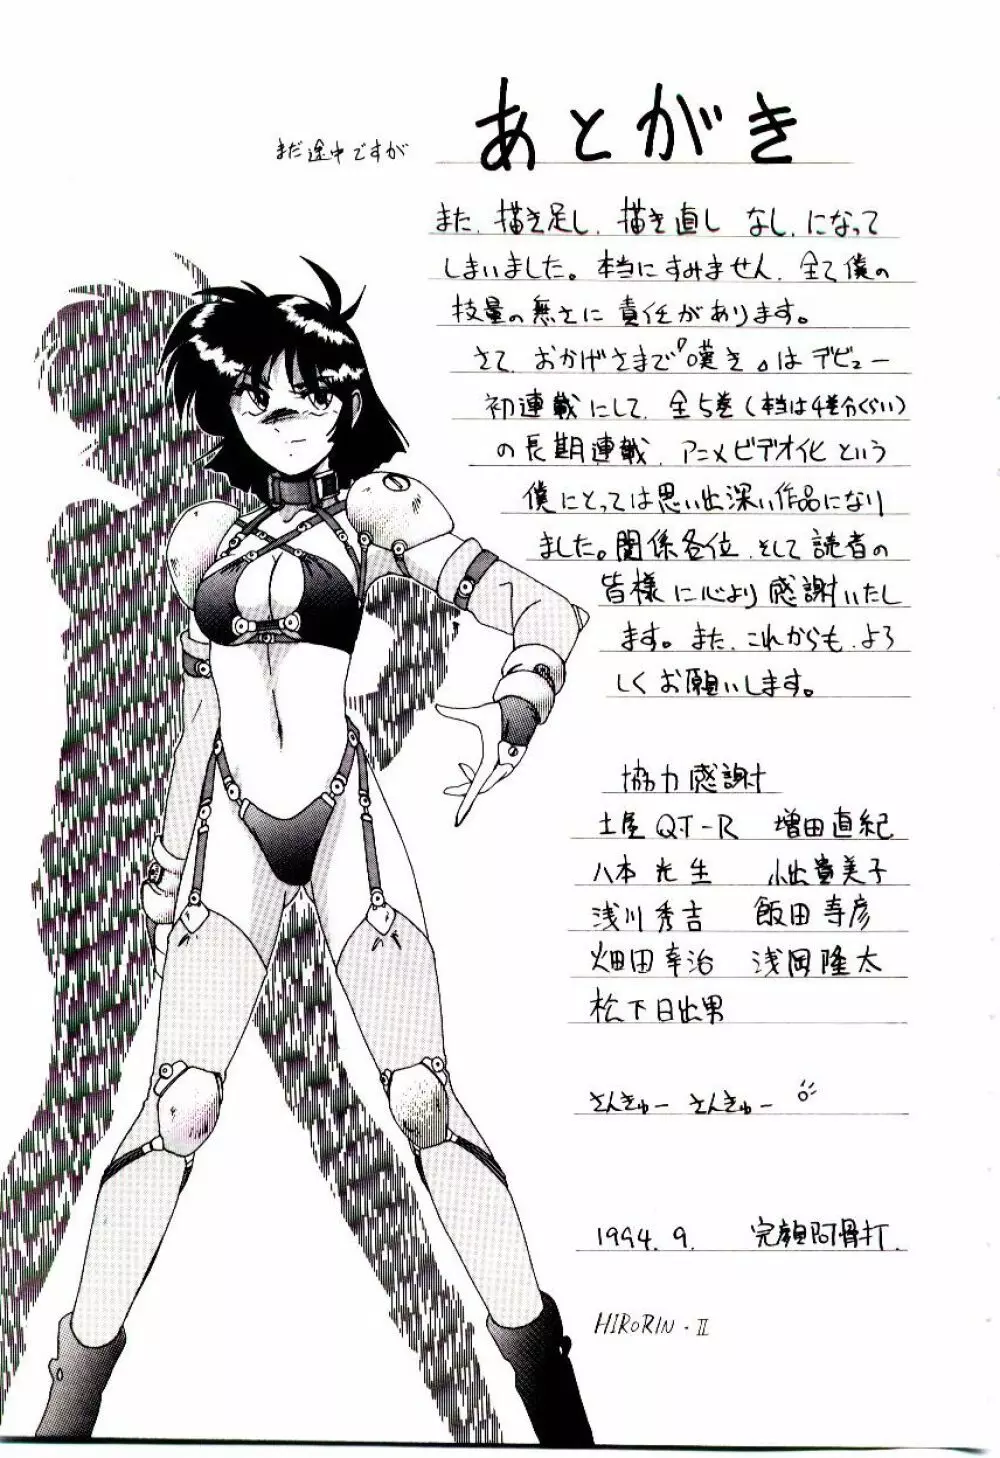 まだ途中ですが
あとがき
また、描き足し、描き直し なし、になって
しまいました。本当にすみません、全て僕の
技量の無さに責任があります。
さて、おかげさまで『嘆き』はデビュー
初連載にして、全5巻(本当は4巻分くらい)
の長期連載、アニメビデオ化という
僕にとっては思い出深い作品になり
ました。関係各位、そして読者の
皆様に心より感謝いたし
ます。また、これからも、よろ
しくお願いします。
協力感謝
土屋QT-R 増田直紀
八本光生 小出貴美子
浅川秀吉 飯田寿彦
畑田幸治 浅岡隆太
松下日出男
さんきゅー さんきゅー
1994.9. 完顔阿骨打.
HIRORIN・II